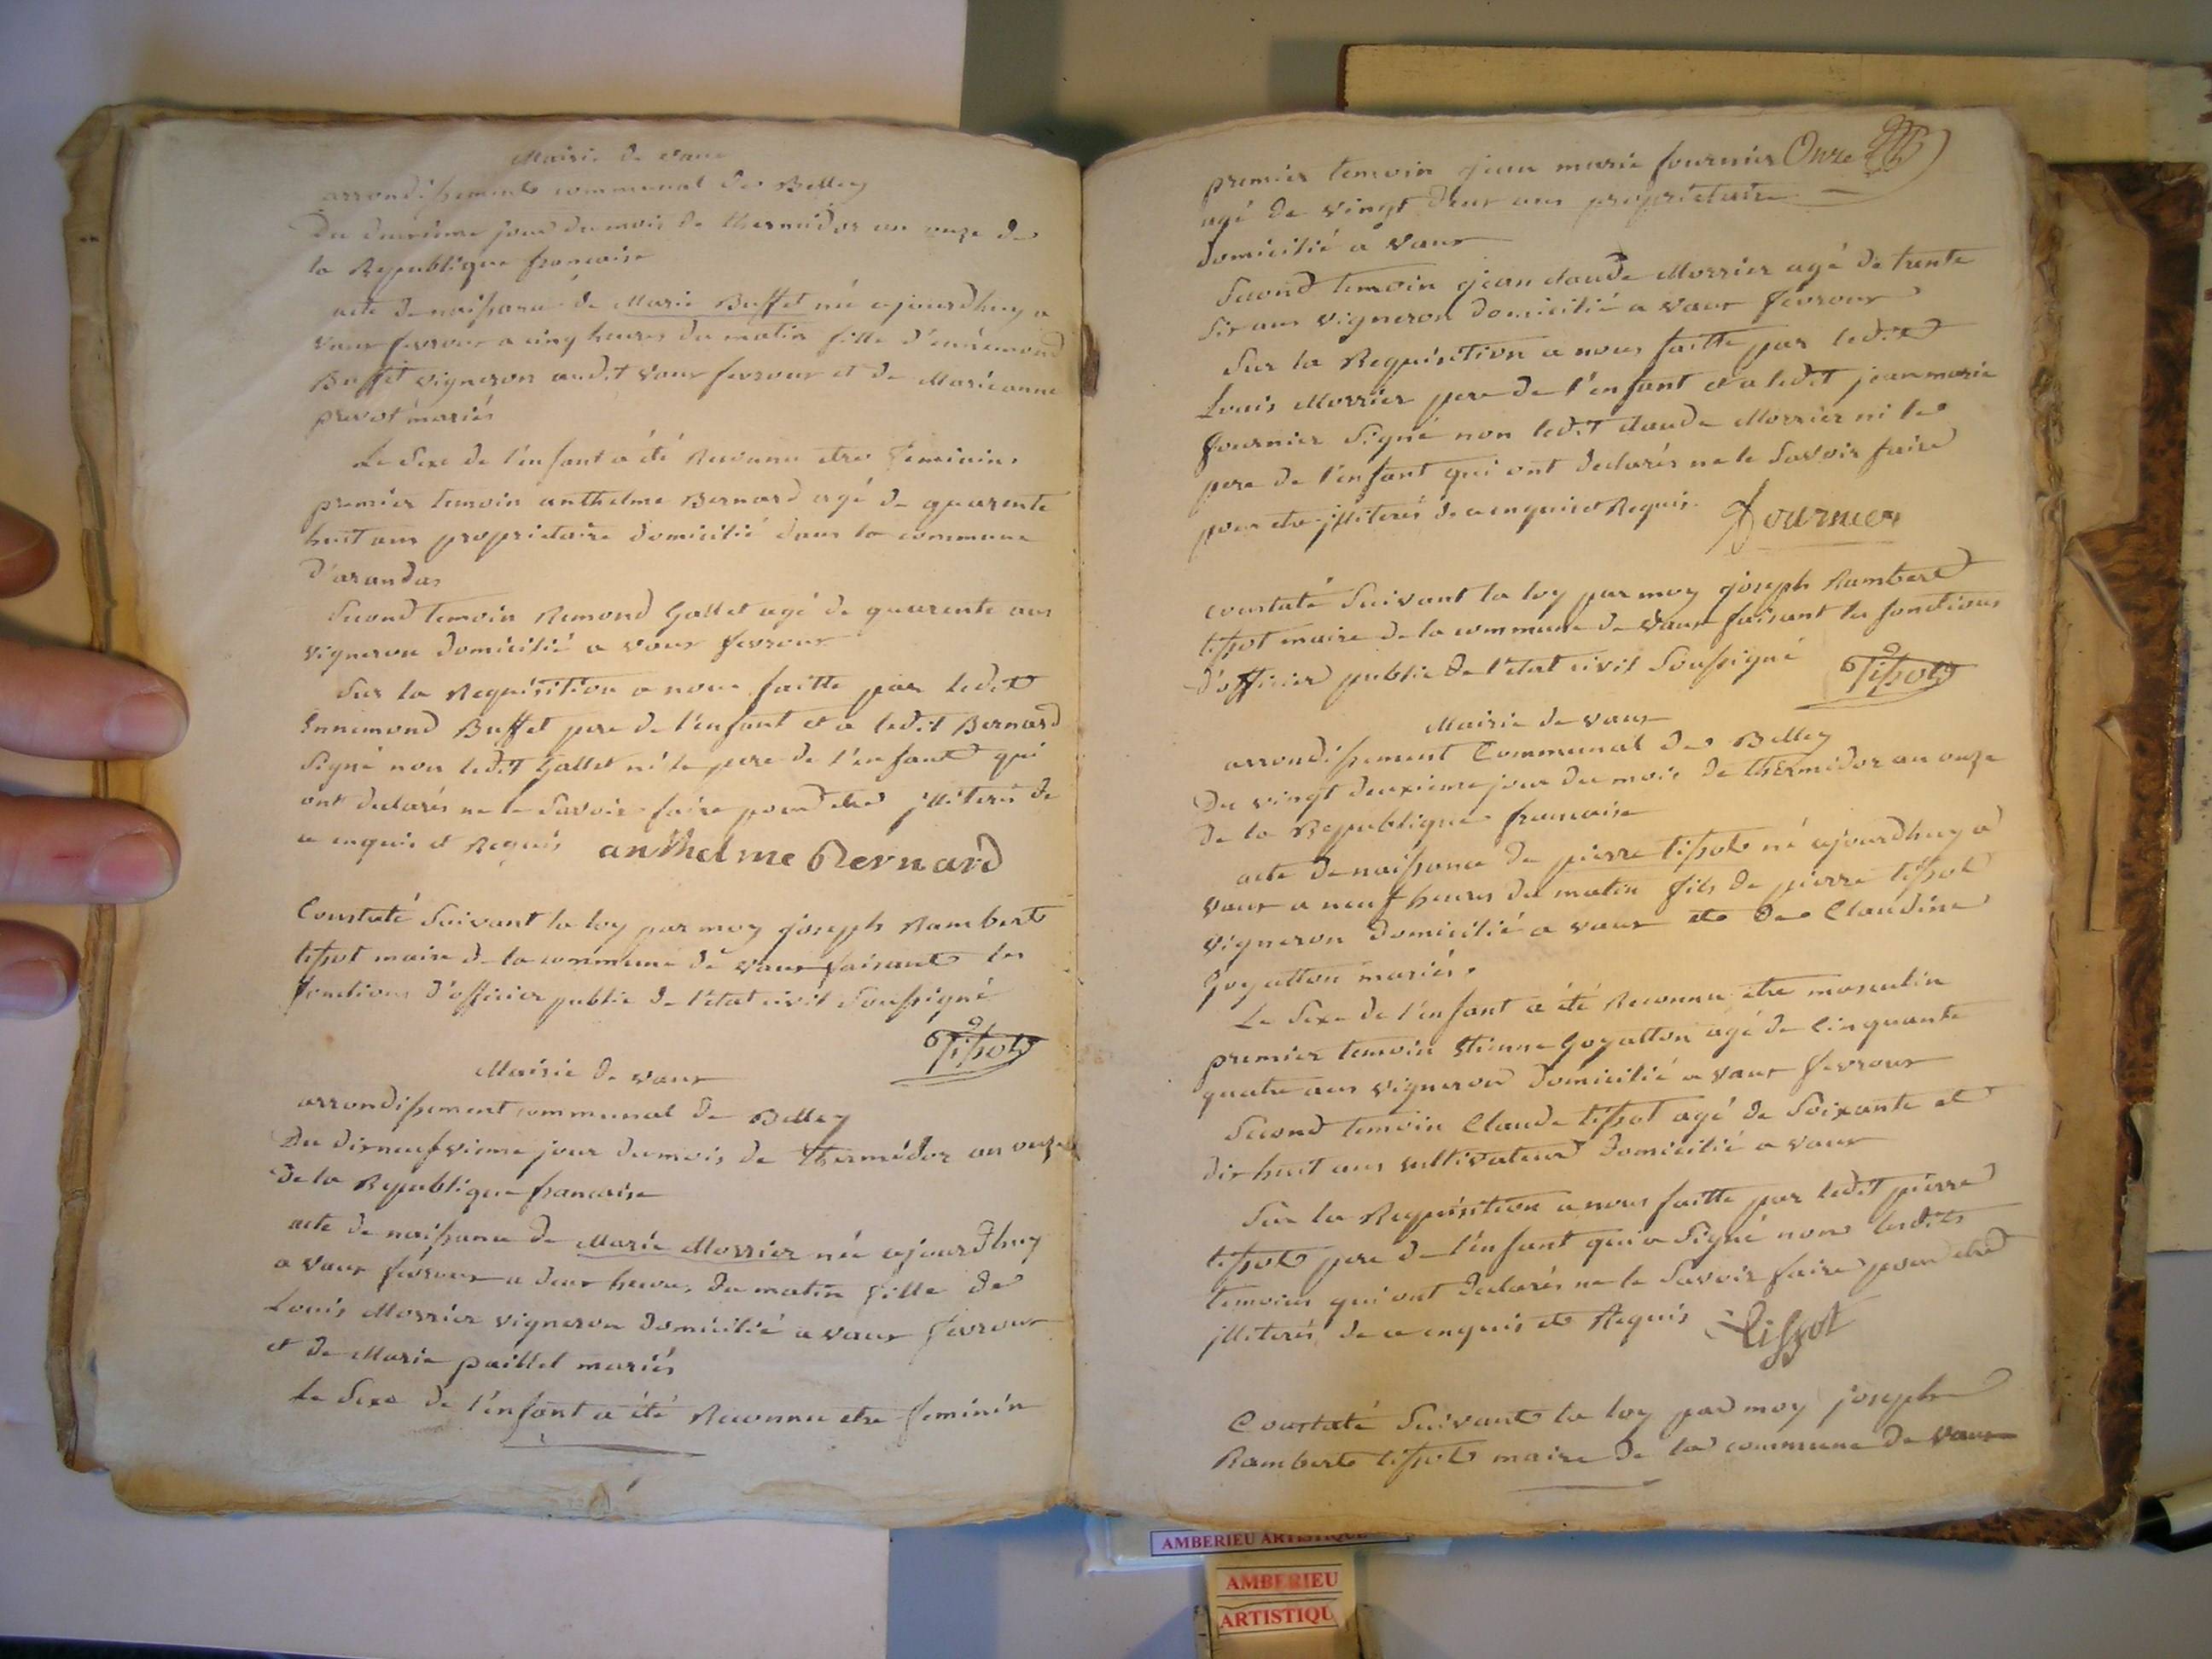 Mairie de vaux
arrondissement communal de Belley
Du deuxieme jour du mois de thermidor an onze de
la Republique francaise
acte de naissance de Marie Buffet née ajourdhuy a
vaux fevroux a cinq heures du matin fille d'ennemond
Buffet vigneron audit vaux fevroux et de Marieanne
prevot mariés
Le Sexe de l'enfant a été Reconnu etre feminin.
premier temoin anthelme Bernard agé de quarente
huit ans propriétaire domicilié dans la commune
d'arandas
Second temoin Remond Gallet agé de quarente ans
vigneron domicilié a vaux fevroux
Sur la Requisition a nous faitte par ledit
Ennemond Buffet pere de l'enfant et a ledit Bernard
Signé non ledit Gallet ni le pere de l'enfant qui
ont declarés ne le Savoir faire pour etre jlliterés de
ce enquis et Requis anthelme Bernard
Constaté Suivant la loy par moy joseph Rambert
tissot maire de la commune de vaux faisant les
fonctions d'officier public de l'etat civil Soussigné
Tissot
Mairie de vaux
arrondissement communal de Belley
Du dixneufvieme jour du mois de thermidor an onze
De la Republique francaise
acte de naissance de Marie Morrier née ajourdhuy
a vaux fevroux a deux heures du matin fille de
Louis Morrier vigneron domicilié a vaux fevroux
et de Marie paillet mariés
Le Sexe de l'enfant a été Reconnu etre feminin
premier temoin jean marie fournier Onze
agé de vingt deux ans proprietaire
domicilié a vaux
Second temoin jean claude Morrier agé de trente
Six ans vigneron domicilié a vaux fevroux
Sur la Requisition a nous faitte par ledit
Louis Morrier pere de l'enfant et a ledit jean marie
fournier Signé non ledit claude Morrier ni le
pere de l'enfant qui ont declarés ne le Savoir faire
pour etre jlliterés de ce enquis et Requis. Fournier
constaté Suivant la loy par moy joseph Rambert
tissot maire de la commune de vaux faisant les fonctions
d'officier public de l'etat civil Soussigné Tissot
Mairie de vaux
arrondissement Communal de Belley
Du vingt deuxieme jour du mois de thermidor an onze
de la Republique francaise
acte de naissance de pierre tissot né ajourdhuy a
vaux a neuf heures du matin fils de pierre tissot
vigneron domicilié a vaux et de Claudine
Goyatton mariés.
Le Sexe de l'enfant a été Reconnu etre masculin
premier temoin Etienne Goyatton agé de Cinquante
quatre ans vigneron domicilié a vaux fevroux
Second temoin Claude tissot agé de Soixante et
dix huit ans cultivateur domicilié a vaux
Sur la Requisition a nous faitte par ledit pierre
tissot pere de l'enfant qui a Signé non lesdits
temoins qui ont declarés ne le Savoir faire pour etre
jlliterés de ce enquis et Requis Tissot
Constaté Suivant la loy par moy joseph
Rambert tissot maire de la commune de vaux
AMBERIEU ARTISTIQUE
AMBERIEU
ARTISTIQU